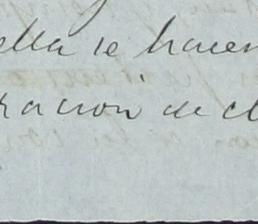 ella se hacen
racion de cl